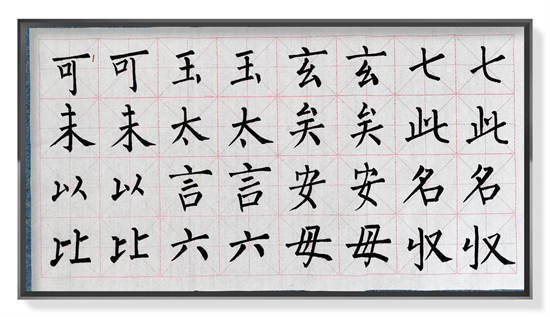 七此名収
七此名収
玄矣安毋
玄矣安毋
玉太言六
玉太言六
可未以比
可未以比